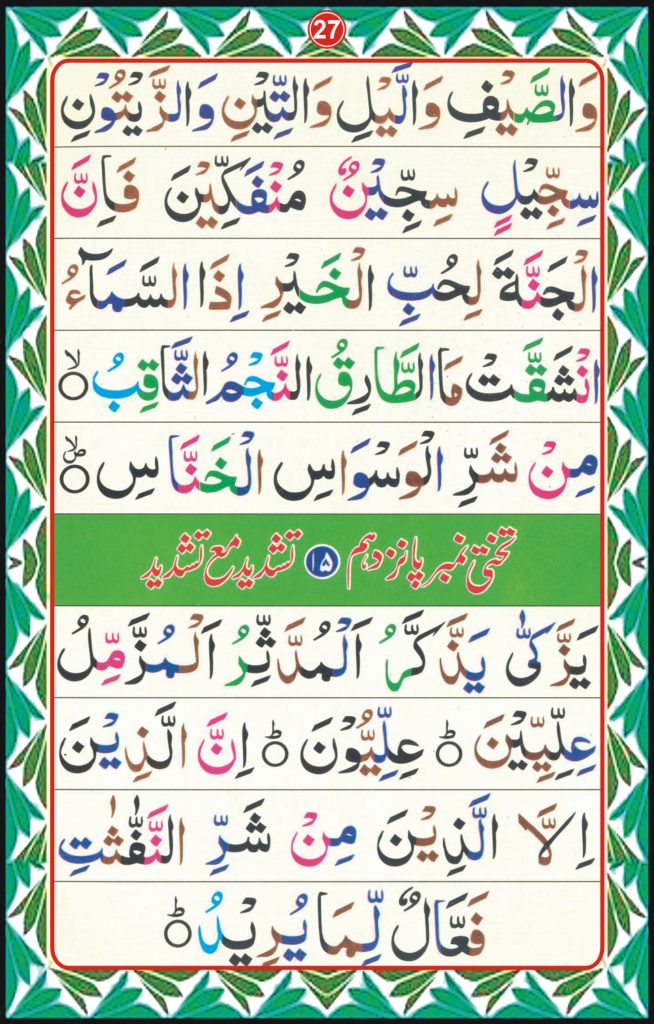 27
وَالصَّيْفِ وَالَّيْلِ وَالتِّيْنِ وَالزَّيْتُوْنِ
سِجِّيْلٍ سِجِّيْنٌ مُنْفَكِّيْنَ فَاِنَّ
الْجَنَّةَ لِحُبِّ الْخَيْرِ اِذَا السَّمَآءُ
انْشَقَّتْ مَا الطَّارِقُ النَّجْمُ الثَّاقِبُ ۙ
مِنْ شَرِّ الْوَسْوَاسِ الْخَنَّاسِ ۙ
تختی نمبر پانزدہم ۱۵ تشدید مع تشدید
يَزَّكّٰى يَذَّكَّرُ اَلْمُدَّثِّرُ اَلْمُزَّمِّلُ
عِلِّيِّيْنَ ؕ عِلِّيُّوْنَ ؕ اِنَّ الَّذِيْنَ
اِلَّا الَّذِيْنَ مِنْ شَرِّ النَّفّٰثٰتِ
فَعَّالٌ لِّمَا يُرِيْدُ ؕ